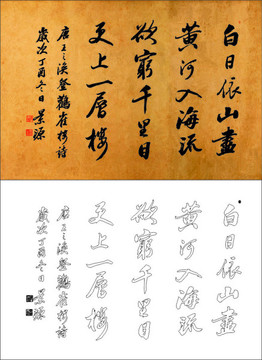 白日依山盡
黃河入海流
欲窮千里目
更上一層樓
唐王之渙登鸛雀樓詩
歲次丁酉冬日景源
白日依山盡
黃河入海流
欲窮千里目
更上一層樓
唐王之渙登鸛雀樓詩
歲次丁酉冬日景源